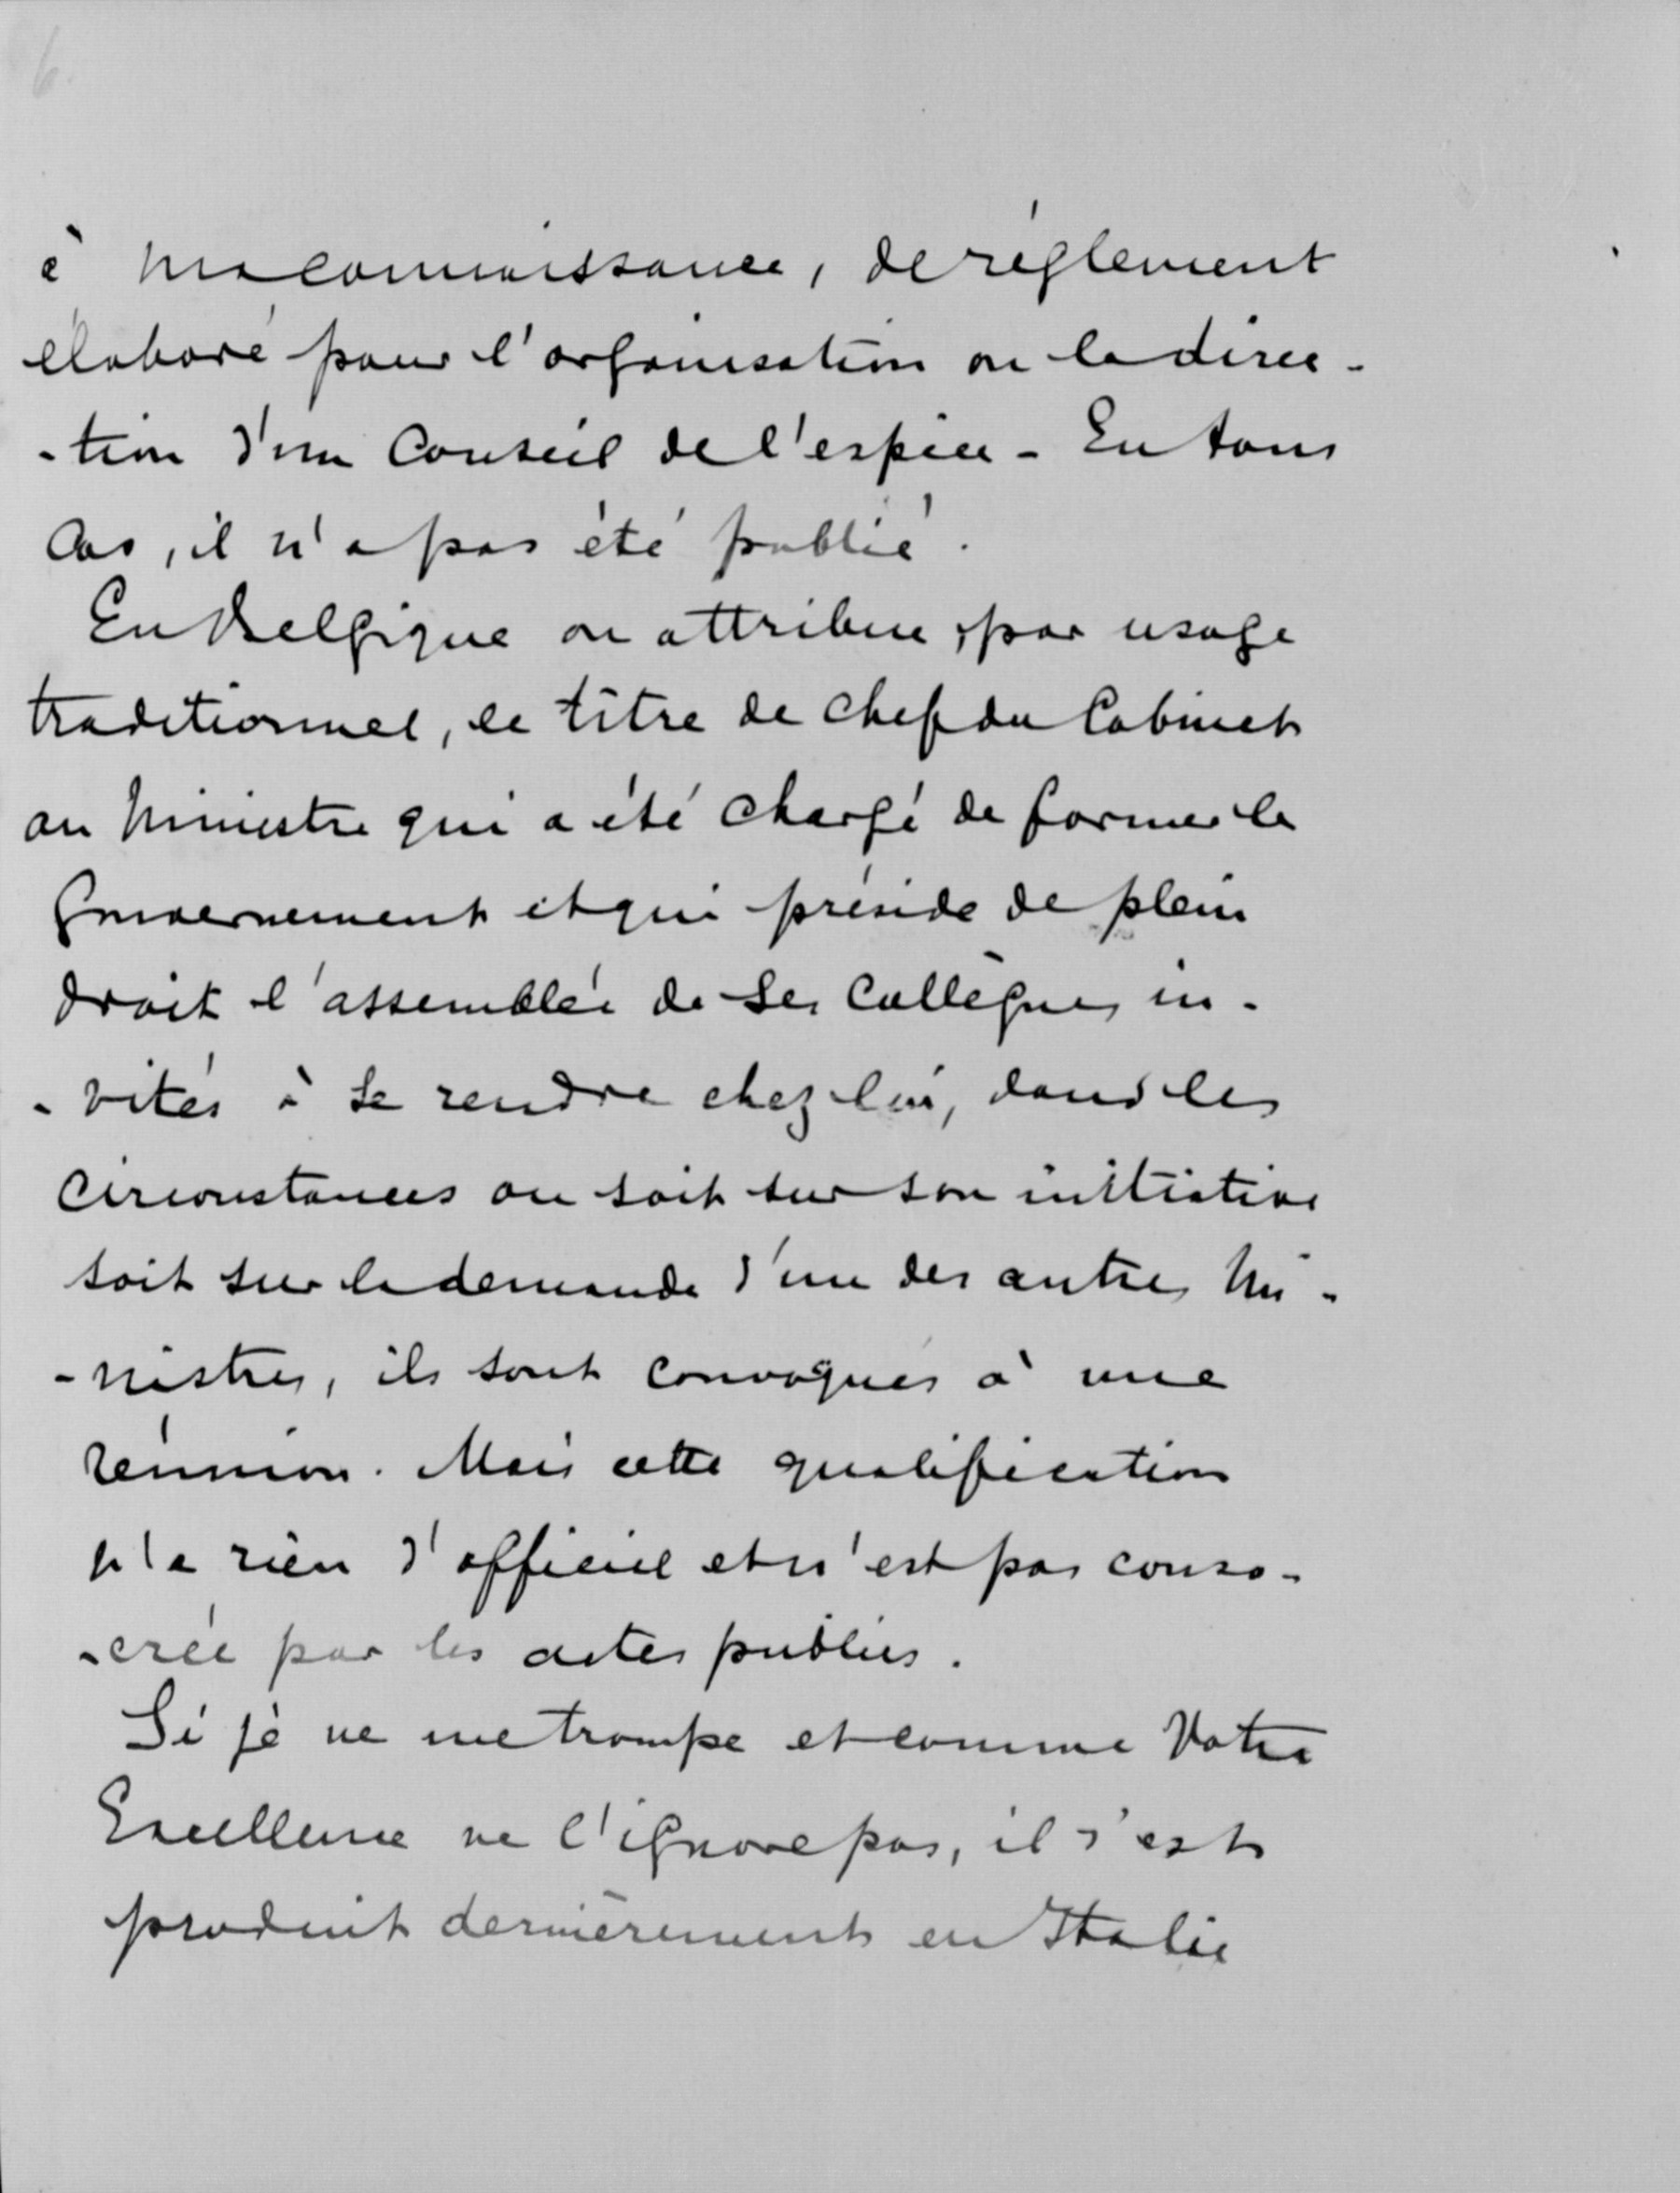 6.
à ma connaissance, de règlement
élaboré pour l'organisation ou la direc-
-tion d'un Conseil de l'espèce - En tous
cas, il n'a pas été publié.
En Belgique on attribue, par usage
traditionnel, le titre de chef du Cabinet
au Ministre qui a été chargé de former le
Gouvernement et qui préside de plein
droit l'assemblée de ses Collègues in-
-vités à se rendre chez lui, dans les
circonstances ou soit sur son initiative
soit sur la demande d'un des autres Mi-
-nistres, ils sont convoqués à une
réunion. Mais cette qualification
n'a rien d'officiel et n'est pas consa-
-crée par les actes publics.
Si je ne me trompe et comme Votre
Excellence ne l'ignore pas, il s'est
produit dernièrement en Italie